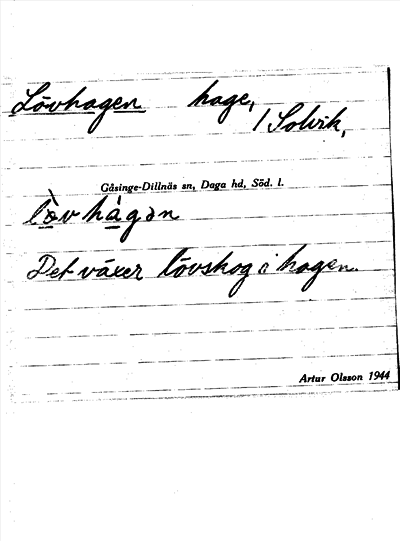 Lövhagen hage,
/ Solvik,
Gåsinge-Dillnäs sn, Daga hd, Söd. l.
lö̀vhàgən
Det växer lövskog i hagen.
Artur Olsson 1944